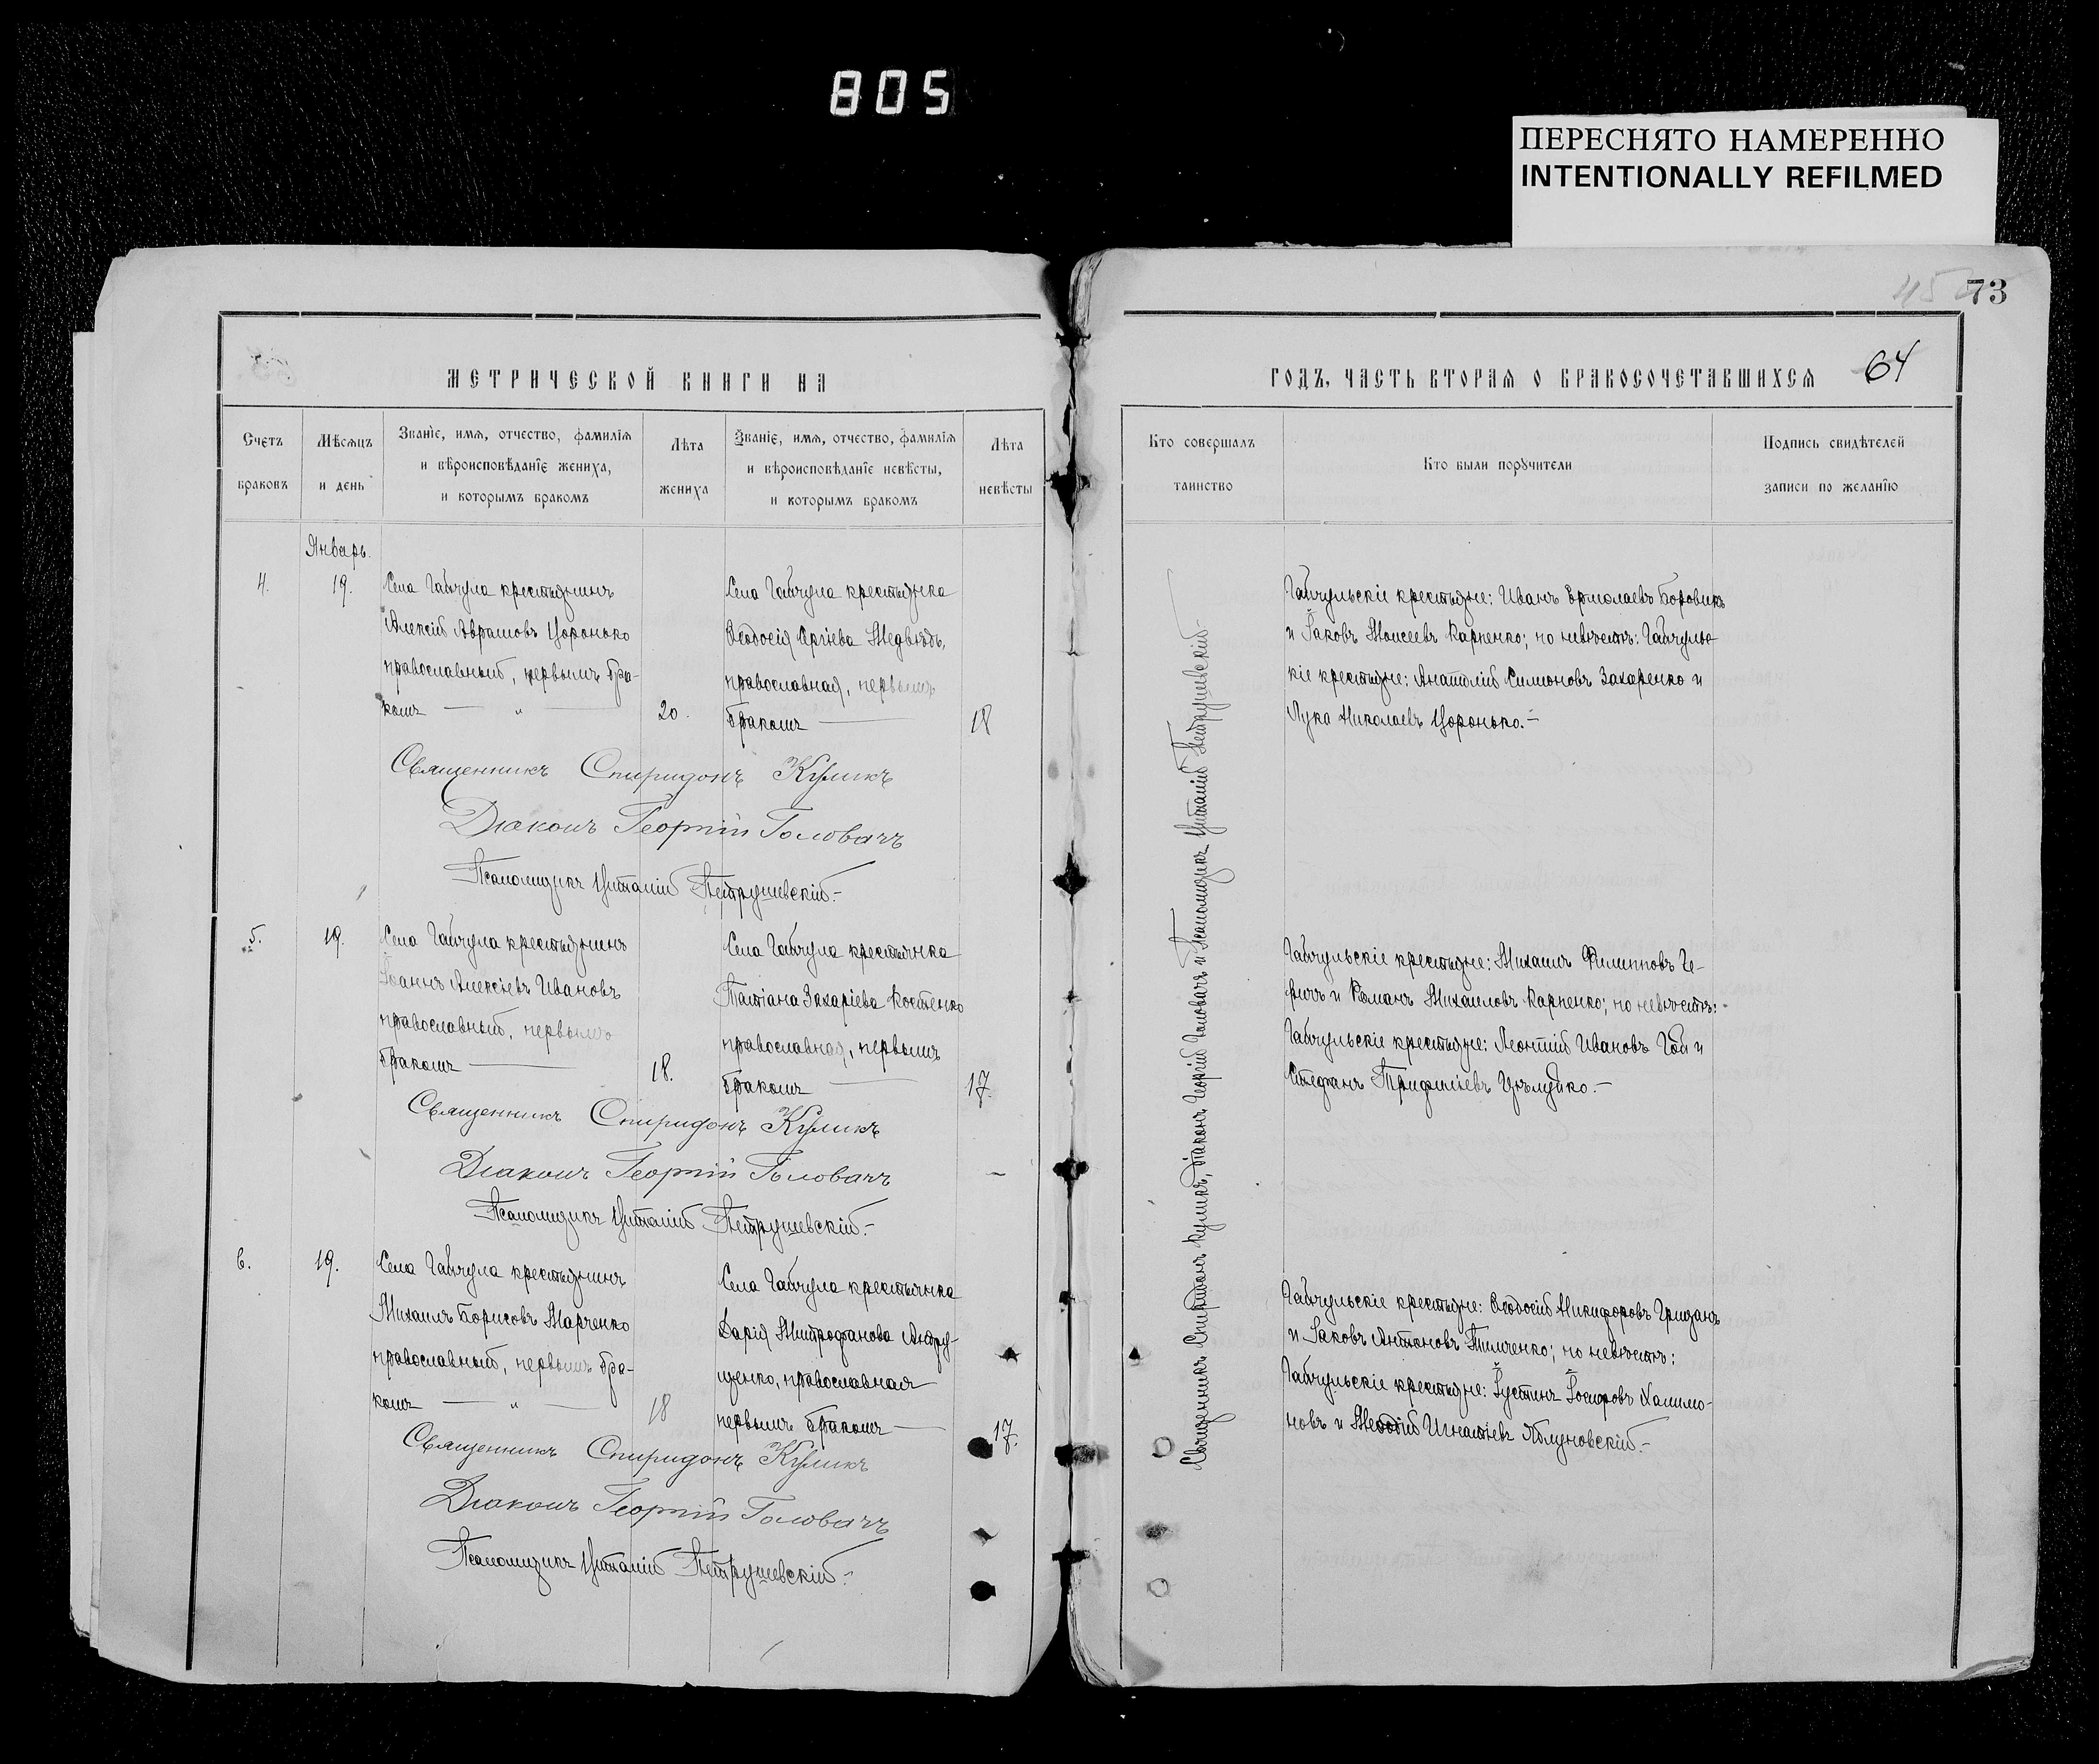 805
ПЕРЕСНЯТО НАМЕРЕННО
INTENTIONALLY REFILMED
73
64
МЕТРИЧЕСКОЙ КНИГИ НА
ГОДЪ, ЧАСТЬ ВТОРАЯ О БРАКОСОЧЕТАВШИХСЯ
Счетъ браковъ
Мѣсяцъ и день
Званіе, имя, отчество, фамилія
и вѣроисповѣданіе жениха,
и которымъ бракомъ
Лѣта жениха
Званіе, имя, отчество, фамилія
и вѣроисповѣданіе невѣсты,
и которымъ бракомъ
Лѣта невѣсты
Кто совершалъ таинство
Кто были поручители
Подпись свидѣтелей
записи по желанію
Январь.
4.
19.
Села Гайчула крестьянинъ
Алексій Аврамовъ Цоронько
православный, первымъ бра-
комъ — „ —
20.
Села Гайчула крестьянка
Ѳеодосія Сергіева Медвѣдь,
православная, первымъ
бракомъ —
18
Священникъ Спиридонъ Куликъ
Діаконъ Георгій Головачъ
Псаломщикъ Виталій Петрушевскій.-
Гайчульскіе крестьяне: Иванъ Ермолаевъ Боровикъ
и Іаковъ Моисеевъ Карпенко; по невѣстѣ: Гайчульс-
кіе крестьяне: Анатолій Симоновъ Захаренко и
Лука Николаевъ Цоронько.-
5.
19.
Села Гайчула крестьянинъ
Іоаннъ Алексіевъ Ивановъ
православный, первымъ
бракомъ —
18.
Села Гайчула крестьянка
Татіана Захаріева Костенко
православная, первымъ
бракомъ —
17.
Священникъ Спиридонъ Куликъ
Діаконъ Георгій Головачъ
Псаломщикъ Виталій Петрушевскій.-
Гайчульскіе крестьяне: Михаилъ Филипповъ
и Романъ Михаиловъ Карпенко; по невѣстѣ:
Гайчульскіе крестьяне: Леонтій Ивановъ Гой и
Стефанъ
6.
19.
Села Гайчула крестьянинъ
Михаилъ Борисовъ Марченко
православный, первымъ бра-
комъ — „ —
18
Села Гайчула крестьянка
Дарія Митрофанова Андру-
щенко, православная
первымъ бракомъ —
17.
Священникъ Спиридонъ Куликъ
Діаконъ Георгій Головачъ
Псаломщикъ Виталій Петрушевскій.-
Гайчульскіе крестьяне: Ѳеодосій Никифоровъ
и Іаковъ Антоновъ Тимченко; по невѣстѣ:
Гайчульскіе крестьяне: Іустинъ Халимо-
новъ и Меѳодій Игнатіевъ Яблуновскій.-
Священникъ Спиридонъ Куликъ, Діаконъ Георгій Головачъ и Псаломщикъ Виталій Петрушевскій.-